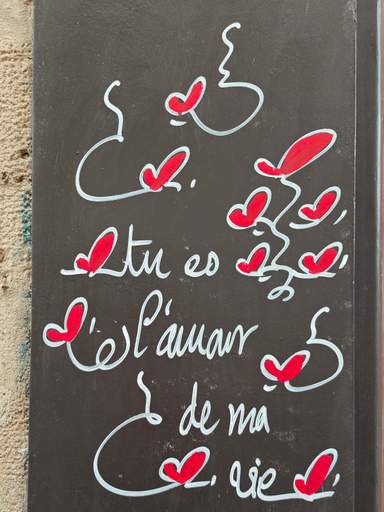 tu es
l'amour
de ma
vie